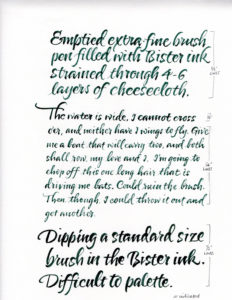 Emptied extra-fine brush
pen filled with Bister ink
strained through 4-6
layers of cheesecloth.
The water is wide, I cannot cross
o'er, and neither have I wings to fly. Give
me a boat that will carry two, and both
shall row, my love and I. I'm going to
chop off this one long hair that is
driving me bats. Could ruin the brush.
Then, though, I could throw it out and
get another.
Dipping a standard size
brush in the Bister ink.
Difficult to palette.